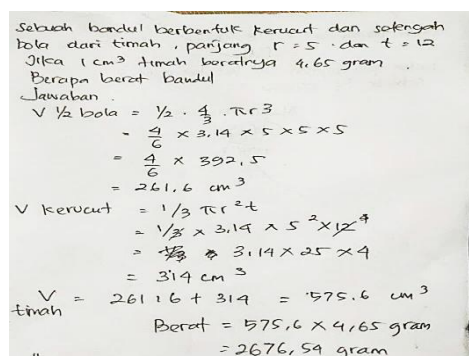 Sebuah bandul berbentuk kerucut dan setengah
bola dari timah, panjang r = 5 dan t = 12
Jika 1 cm³ timah beratnya 4,65 gram
Berapa berat bandul
Jawaban
V ½ bola = ½ . 4/3 . πr3
= 4/6 x 3,14 x 5 x 5 x 5
= 4/6 x 392,5
= 261.6 cm³
V kerucut = 1/3 πr²t
= 1/3 x 3,14 x 5² x 12 4
= 3,14 x 25 x 4
= 314 cm³
V timah = 26116 + 314 = 575.6 cm³
Berat = 575,6 x 4,65 gram
= 2676,54 gram